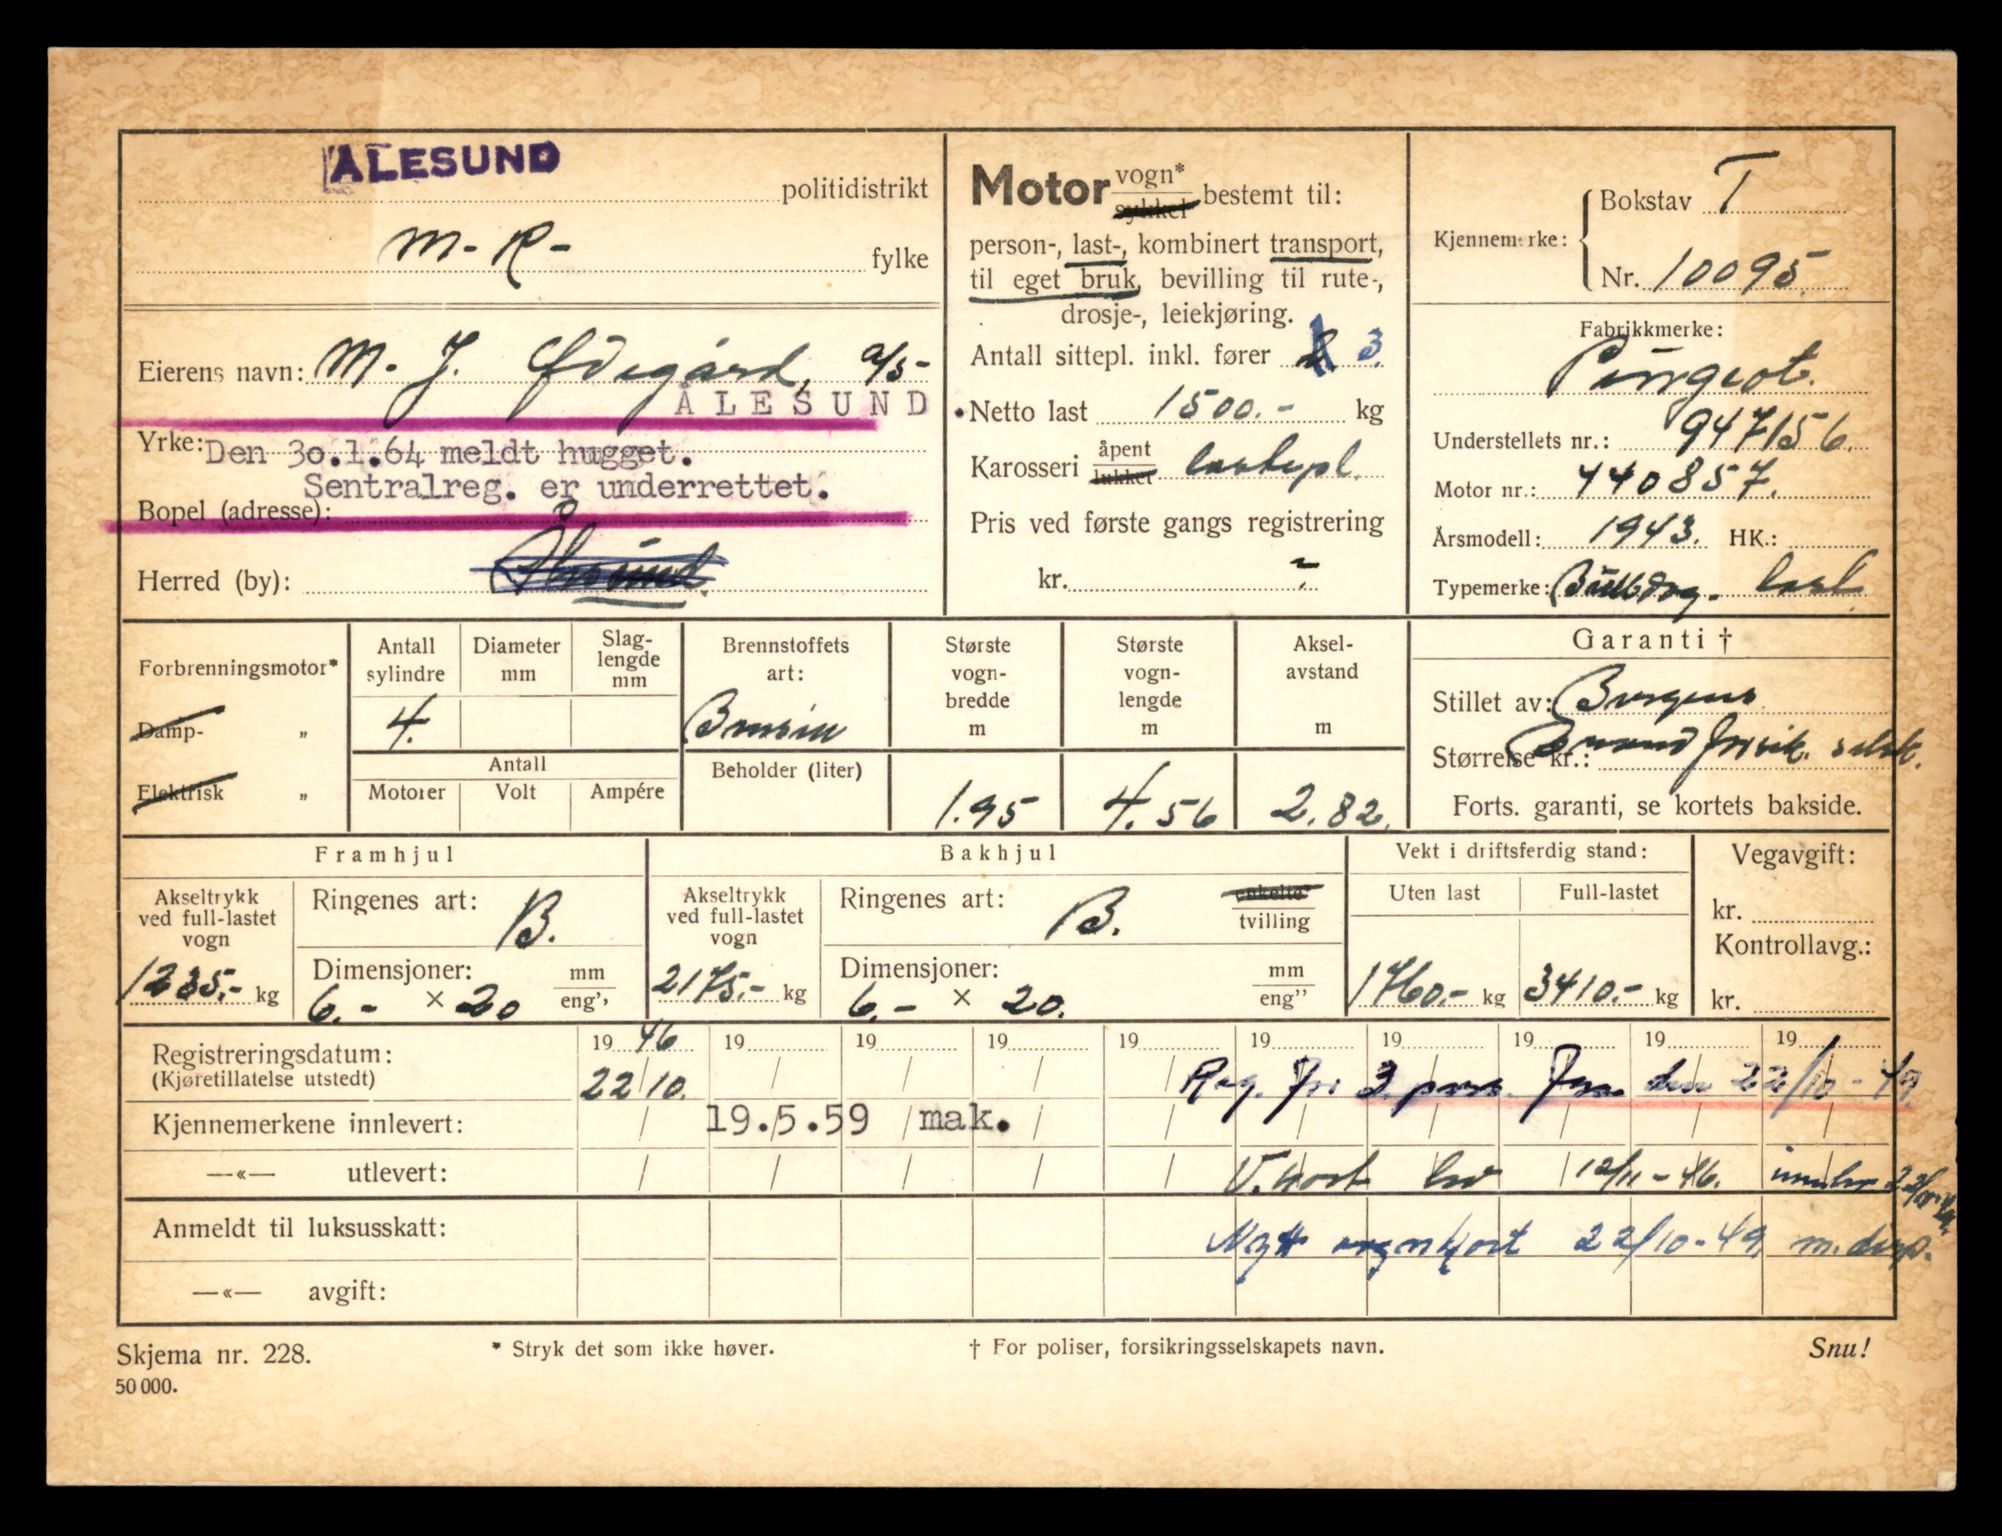 ÅLESUND
politidistrikt
M.-R- fylke
Eierens navn: M. J. Ødegård, a/s-
ÅLESUND
Yrke: Den 30.1.64 meldt hugget.
Sentralreg. er underrettet.
Bopel (adresse):
Herred (by): Ålesund
Motor vogn* sykkel bestemt til:
person-, last-, kombinert transport,
til eget bruk, bevilling til rute-,
drosje-, leiekjøring.
Antall sittepl. inkl. fører 2 3.
Netto last 1500.- kg
Karosseri åpent lukket lastepl.
Pris ved første gangs registrering
kr. -
Kjennemerke: Bokstav T
Nr. 10095.
Fabrikkmerke:
Peugeot.
Understellets nr.: 947156.
Motor nr.: 440857.
Årsmodell: 1943. HK.:
Typemerke: Bulldog. last.
Forbrenningsmotor*
Damp- „
Elektrisk „
Antall sylindre
4.
Diameter mm
Slag-lengde mm
Antall
Motorer Volt Ampére
Brennstoffets art:
Bensin
Beholder (liter)
Største vogn-bredde m
1.95
Største vogn-lengde m
4.56
Aksel-avstand m
2.82.
Garanti †
Stillet av: Bergens
Størrelse kr.: Brand forsik. selsk.
Forts. garanti, se kortets bakside.
Framhjul
Akseltrykk ved full-lastet vogn
1235.- kg
Ringenes art: B.
Dimensjoner: mm eng''
6.- × 20
Bakhjul
Akseltrykk ved full-lastet vogn
2175.- kg
Ringenes art: B. enkelte* tvilling
Dimensjoner: mm eng''
6.- × 20.
Vekt i driftsferdig stand:
Uten last Full-lastet
1760.- kg 3410.- kg
Vegavgift:
kr.
Kontrollavg.:
kr.
Registreringsdatum: 1946 19 19 19 19 19 19 19 19 19
(Kjøretillatelse utstedt) 22/10. Reg. for 3 pers. den 22/10-49.
Kjennemerkene innlevert: 19.5.59 mak.
—«— utlevert: V.kort lev 12/11-46.
Anmeldt til luksusskatt: Nytt vognkort 22/10-49 m. disp.
—«— avgift:
Skjema nr. 228.
50 000.
* Stryk det som ikke høver.
† For poliser, forsikringsselskapets navn.
Snu!